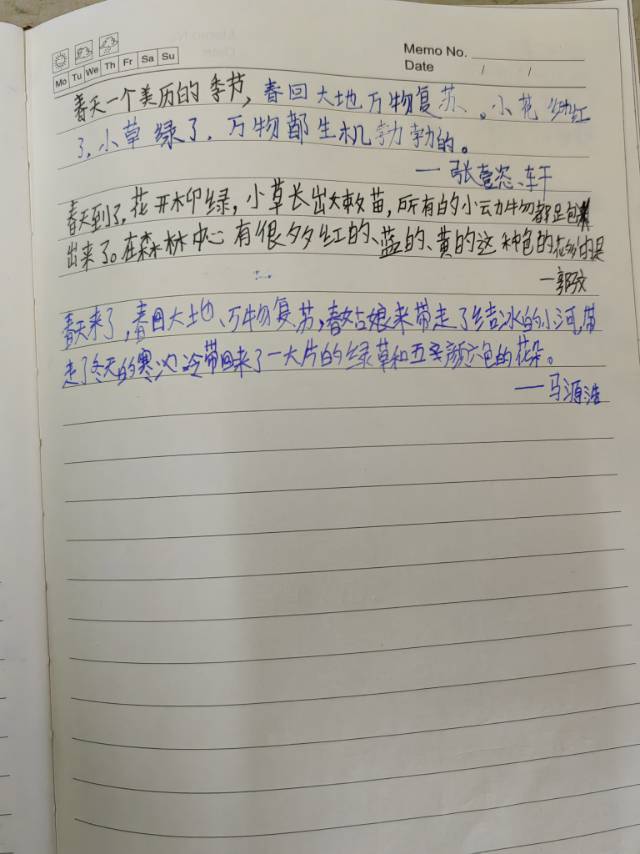 Memo No.
Date / /
Mo Tu We Th Fr Sa Su
春天一个美历的季节,春回大地万物复苏。小花红
了,小草绿了.万物都生机勃勃的。
一张宸、轩
春天到了,花开柳绿,小草长出嫩苗,所有的小动物都跑
出来了。在森林中心有很多红的、蓝的、黄的这种色的花
一郭
春天来了,春回大地、万物复苏,春姑娘来带走了结冰的小河,带
走了冬天的寒冷带回来了一大片的绿草和五颜六色的花朵。
一马源浩